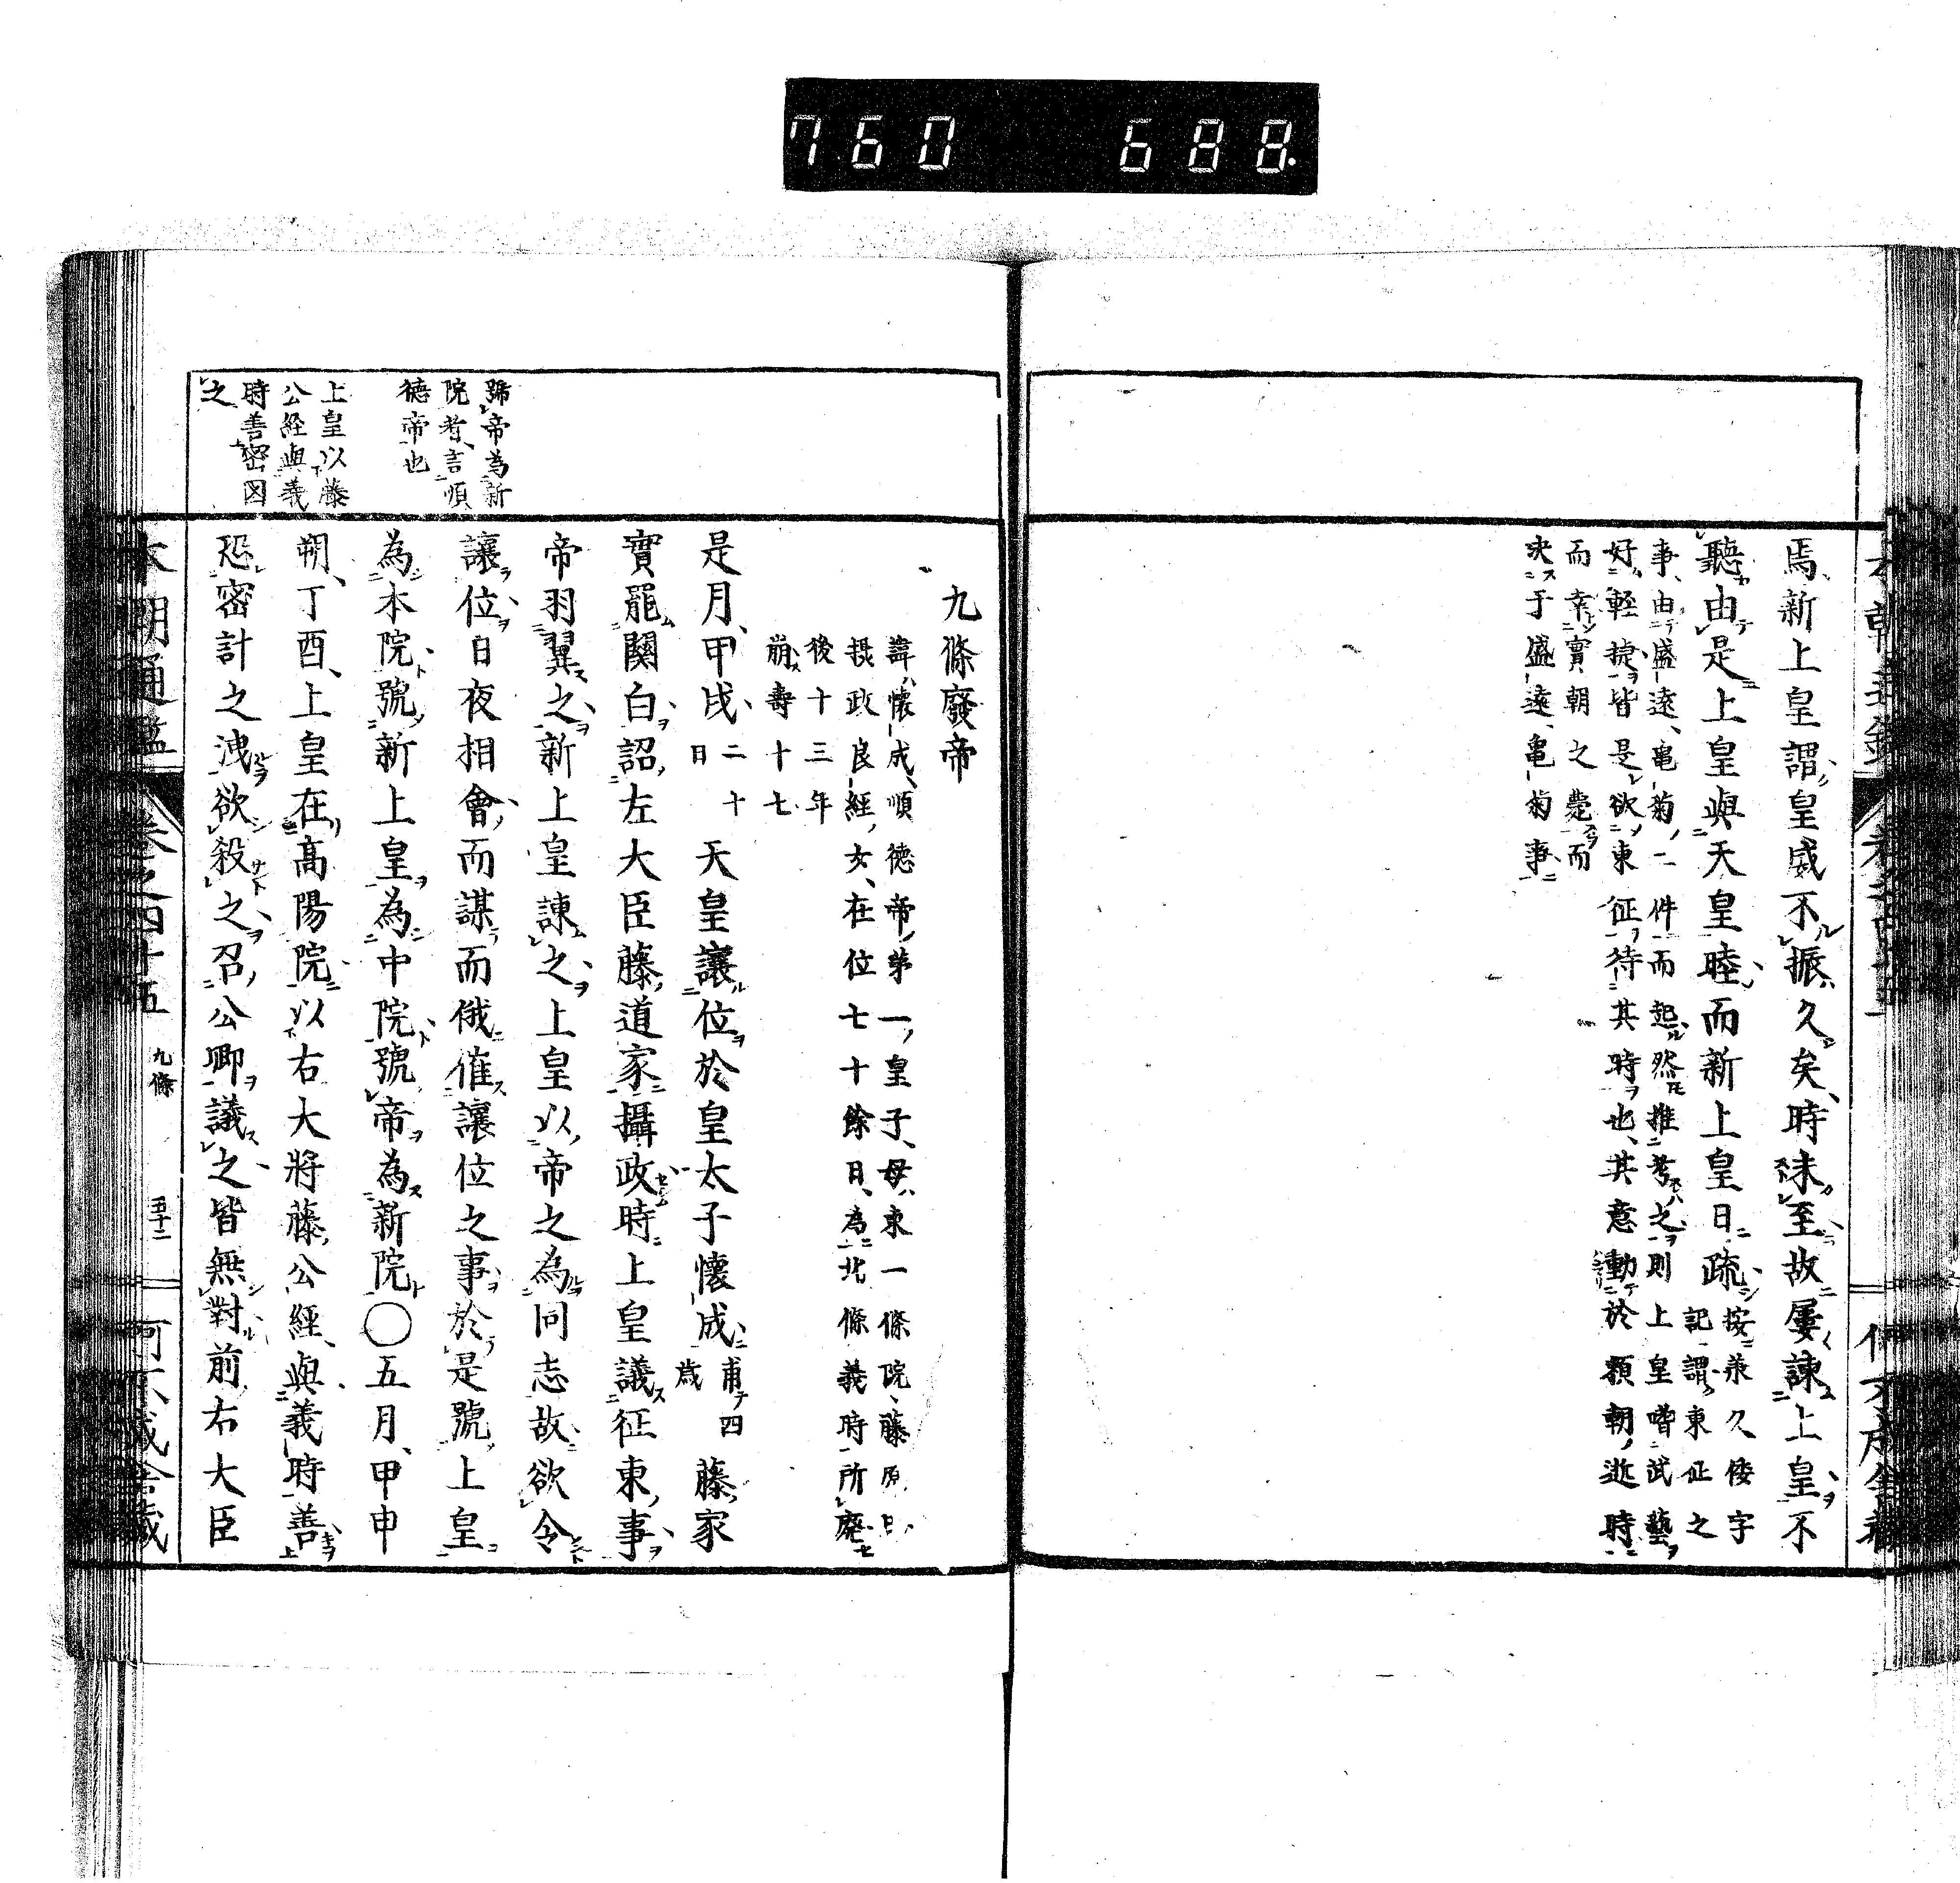 760 688.
焉新上皇謂皇威不振久矣時未至故屢諫上皇不
聽由是上皇與天皇睦而新上皇日疏
按兼久倭字
記謂東征之
事由盛遠龜菊二件而起然推考之則上皇嗜武藝
好輕捷皆是欲東征待其時也其意動於頼朝逝時
而幸實朝之薨而
決于盛遠龜菊事
九條廢帝
諱懷成順德帝第一皇子母東一條院藤原
攝政良經女在位七十餘日為北條義時所廢
後十三年
崩壽十七
是月甲戌二十日天皇讓位於皇太子懷成甫四歳藤家
實罷關白詔左大臣藤道家攝政時上皇議征東事
帝羽翼之新上皇諫之上皇以帝之為同志故欲令
讓位日夜相會而謀而俄催讓位之事於是號上皇
為本院號新上皇為中院號帝為新院〇五月甲申
朔丁酉上皇在高陽院以右大將藤公經與義時善
恐密計之洩欲殺之召公卿議之皆無對前右大臣
號帝為新
院者言順
德帝也
上皇以藤
公經與義
時善密図
之
本朝通鑑
卷之四十五
九條
五十二